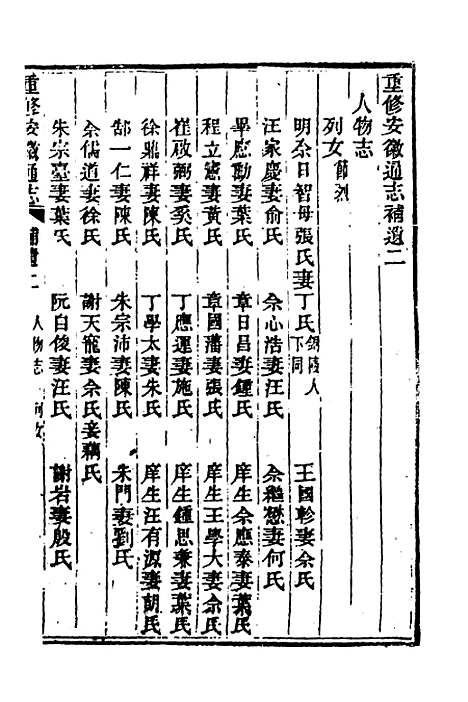 重修安徽通志補遺二
人物志
列女節烈
明佘日智母張氏妻丁氏銅陵人下同 王國軫妻佘氏
汪家慶妻俞氏 佘心浩妻汪氏 佘繼懋妻何氏
畢應勳妻葉氏 章日昌妻鍾氏 庠生佘應泰妻葉氏
程立憲妻黃氏 章國藩妻張氏 庠生王學大妻佘氏
崔政弼妻奚氏 丁應運妻施氏 庠生鍾思兼妻葉氏
徐鼎祥妻陳氏 丁學太妻朱氏 庠生汪有源妻胡氏
郜一仁妻陳氏 朱宗沛妻陳氏 朱門妻劉氏
佘儒道妻徐氏 謝天寵妻佘氏妾藕氏
朱宗臺妻葉氏 阮自俊妻汪氏 謝岩妻殷氏
重修安徽通志 補遺二 人物志 列女